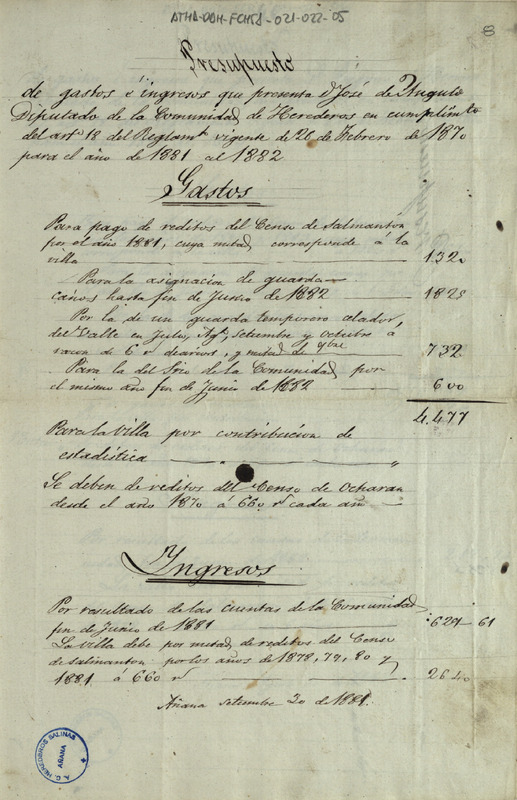 ATHA-DAH-FCHSA-021-022-05
8
Presupuesto
de gastos é ingresos que presenta Dn José de Angulo
Diputado de la Comunidad de Herederos en cumplimto
del artº 18 del Reglamto vigente de 26 de Febrero de 1870
para el año de 1881 al 1882
Gastos
Para pago de reditos del Censo de Salmanton
por el año 1881, cuya mitad corresponde á la
villa 1320
Para la asignacion de guarda
caños hasta fin de Junio de 1882 1825
Por la de un guarda temporero celador,
del Valle en Julio, Agto, Setiembre y Octubre á
razon de 6 rs diarios, y mitad de 9bre 732
Para la del Srio de la Comunidad por
el mismo año fin de Junio de 1882 600
4.477
Para la Villa por contribucion de
estadística " "
Se deben de reditos del Censo de Ocharan
desde el año 1870 á 660 rs cada año
Ingresos
Por resultado de las cuentas de la Comunidad
fin de Junio de 1881 621 61
La Villa debe por mitad de reditos del Censo
de Salmanton por los años de 1878, 79, 80 y
1881 á 660 rs 2640
Añana setiembre 20 de 1881.
A. C. HEREDEROS SALINAS
AÑANA